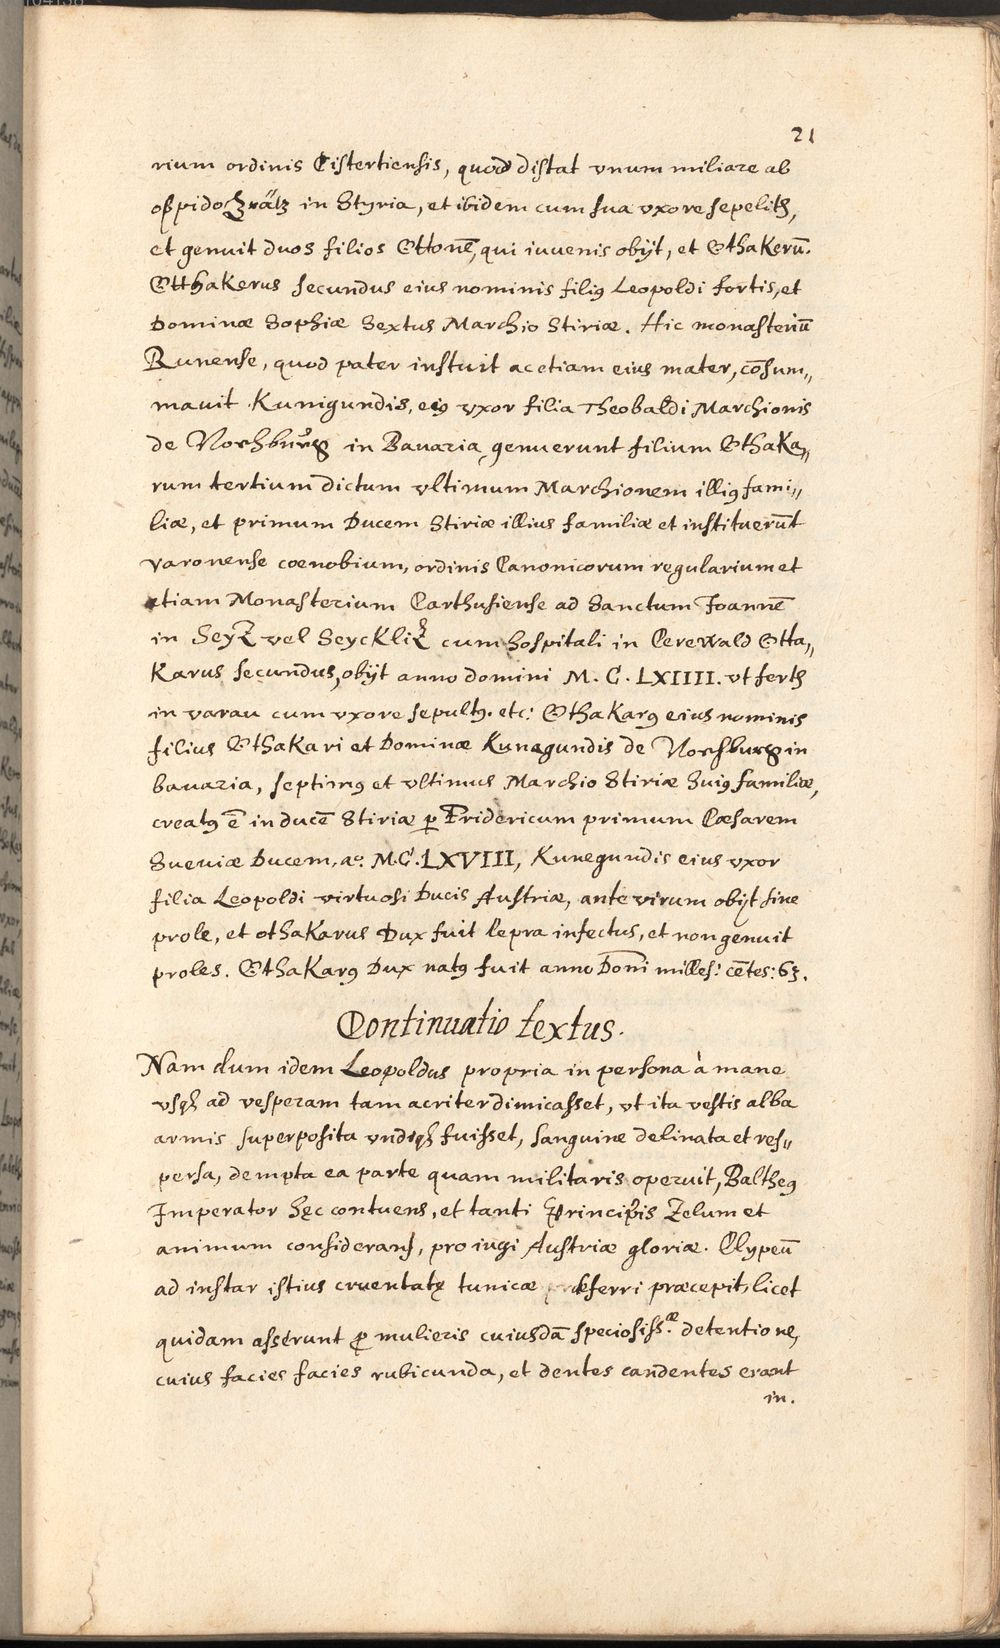 21
rium ordinis Cistertiensis, quod distat vnum miliare ab
oppido Grätz in Styria, et ibidem cum sua vxore sepelitꝫ,
et genuit duos filios Ottonē, qui iuvenis obijt, et OthaKerū.
OtthaKerus secundus eius nominis filiꝰ Leopoldi fortis, et
Dominæ Sophiæ Sextus Marchio Stiriæ. Hic monasteriū
Runense, quod pater instuit ac etiam eius mater, cōsum„
mauit Kunigundis, eiꝰ vxor filia Theobaldi Marchionis
de Vochburg in Bauaria, genuerunt filium OthaKa„
rum tertium dictum vltimum Marchionem illiꝰ fami„
liæ, et primum Ducem Stiriæ illius familiæ et instituerūt
varonense coenobium, ordinis Canonicorum regularium et
etiam Monasterium Carthusiense ad Sanctum Joannē
in SeyZ vel SeycKliZ cum hospitali in Cerewald Otta„
Karus secundus, obijt anno domini M. C. LXIIII. vt fertꝫ
in varau cum vxore sepultꝰ. etc: OthaKarꝰ eius nominis
filius OthaKari et Dominæ Kunegundis de Vochburg in
bauaria, septimꝰ et vltimus Marchio Stiriæ Suiꝰ familiæ,
creatꝰ ē in ducē Stiriæ ꝑ Fridericum primum Cæsarem
Sueuiæ Ducem, aº. M.C. LXVIII, Kunegundis eius vxor
filia Leopoldi virtuosi Ducis Austriæ, ante virum obijt sine
prole, et othaKarus Dux fuit lepra infectus, et non genuit
proles. OthaKarꝰ Dux natꝰ fuit anno Doni milles: cētes: 63.
Continuatio textus.
Nam dum idem Leopoldus propria in persona à mane
vsqꝫ ad vesperam tam acriter dimicasset, vt ita vestis alba
armis superposita vndiqꝫ fuisset, sanguine delinata et res„
persa, dempta ea parte quam militaris operuit, Baltheꝰ
Imperator hęc contuens, et tanti Principis Zelum et
animum considerans, pro iugi Austriæ gloriæ. Clypeū
ad instar istius cruentatę tunicæ deferri præcepit, licet
quidam asserunt ꝓ mulieris cuiusdā speciosiss.æ detentione,
cuius facies facies rubicunda, et dentes candentes erant
in.